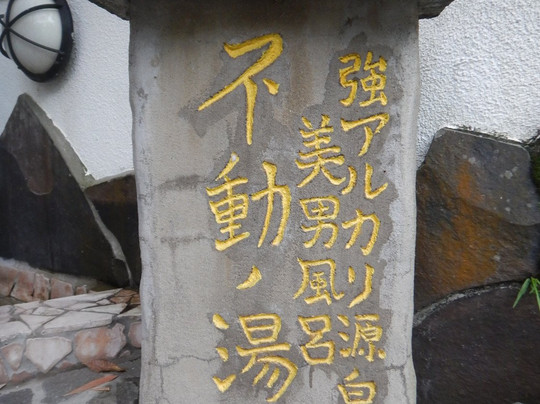 強アルカリ源泉
美男風呂
不動ノ湯